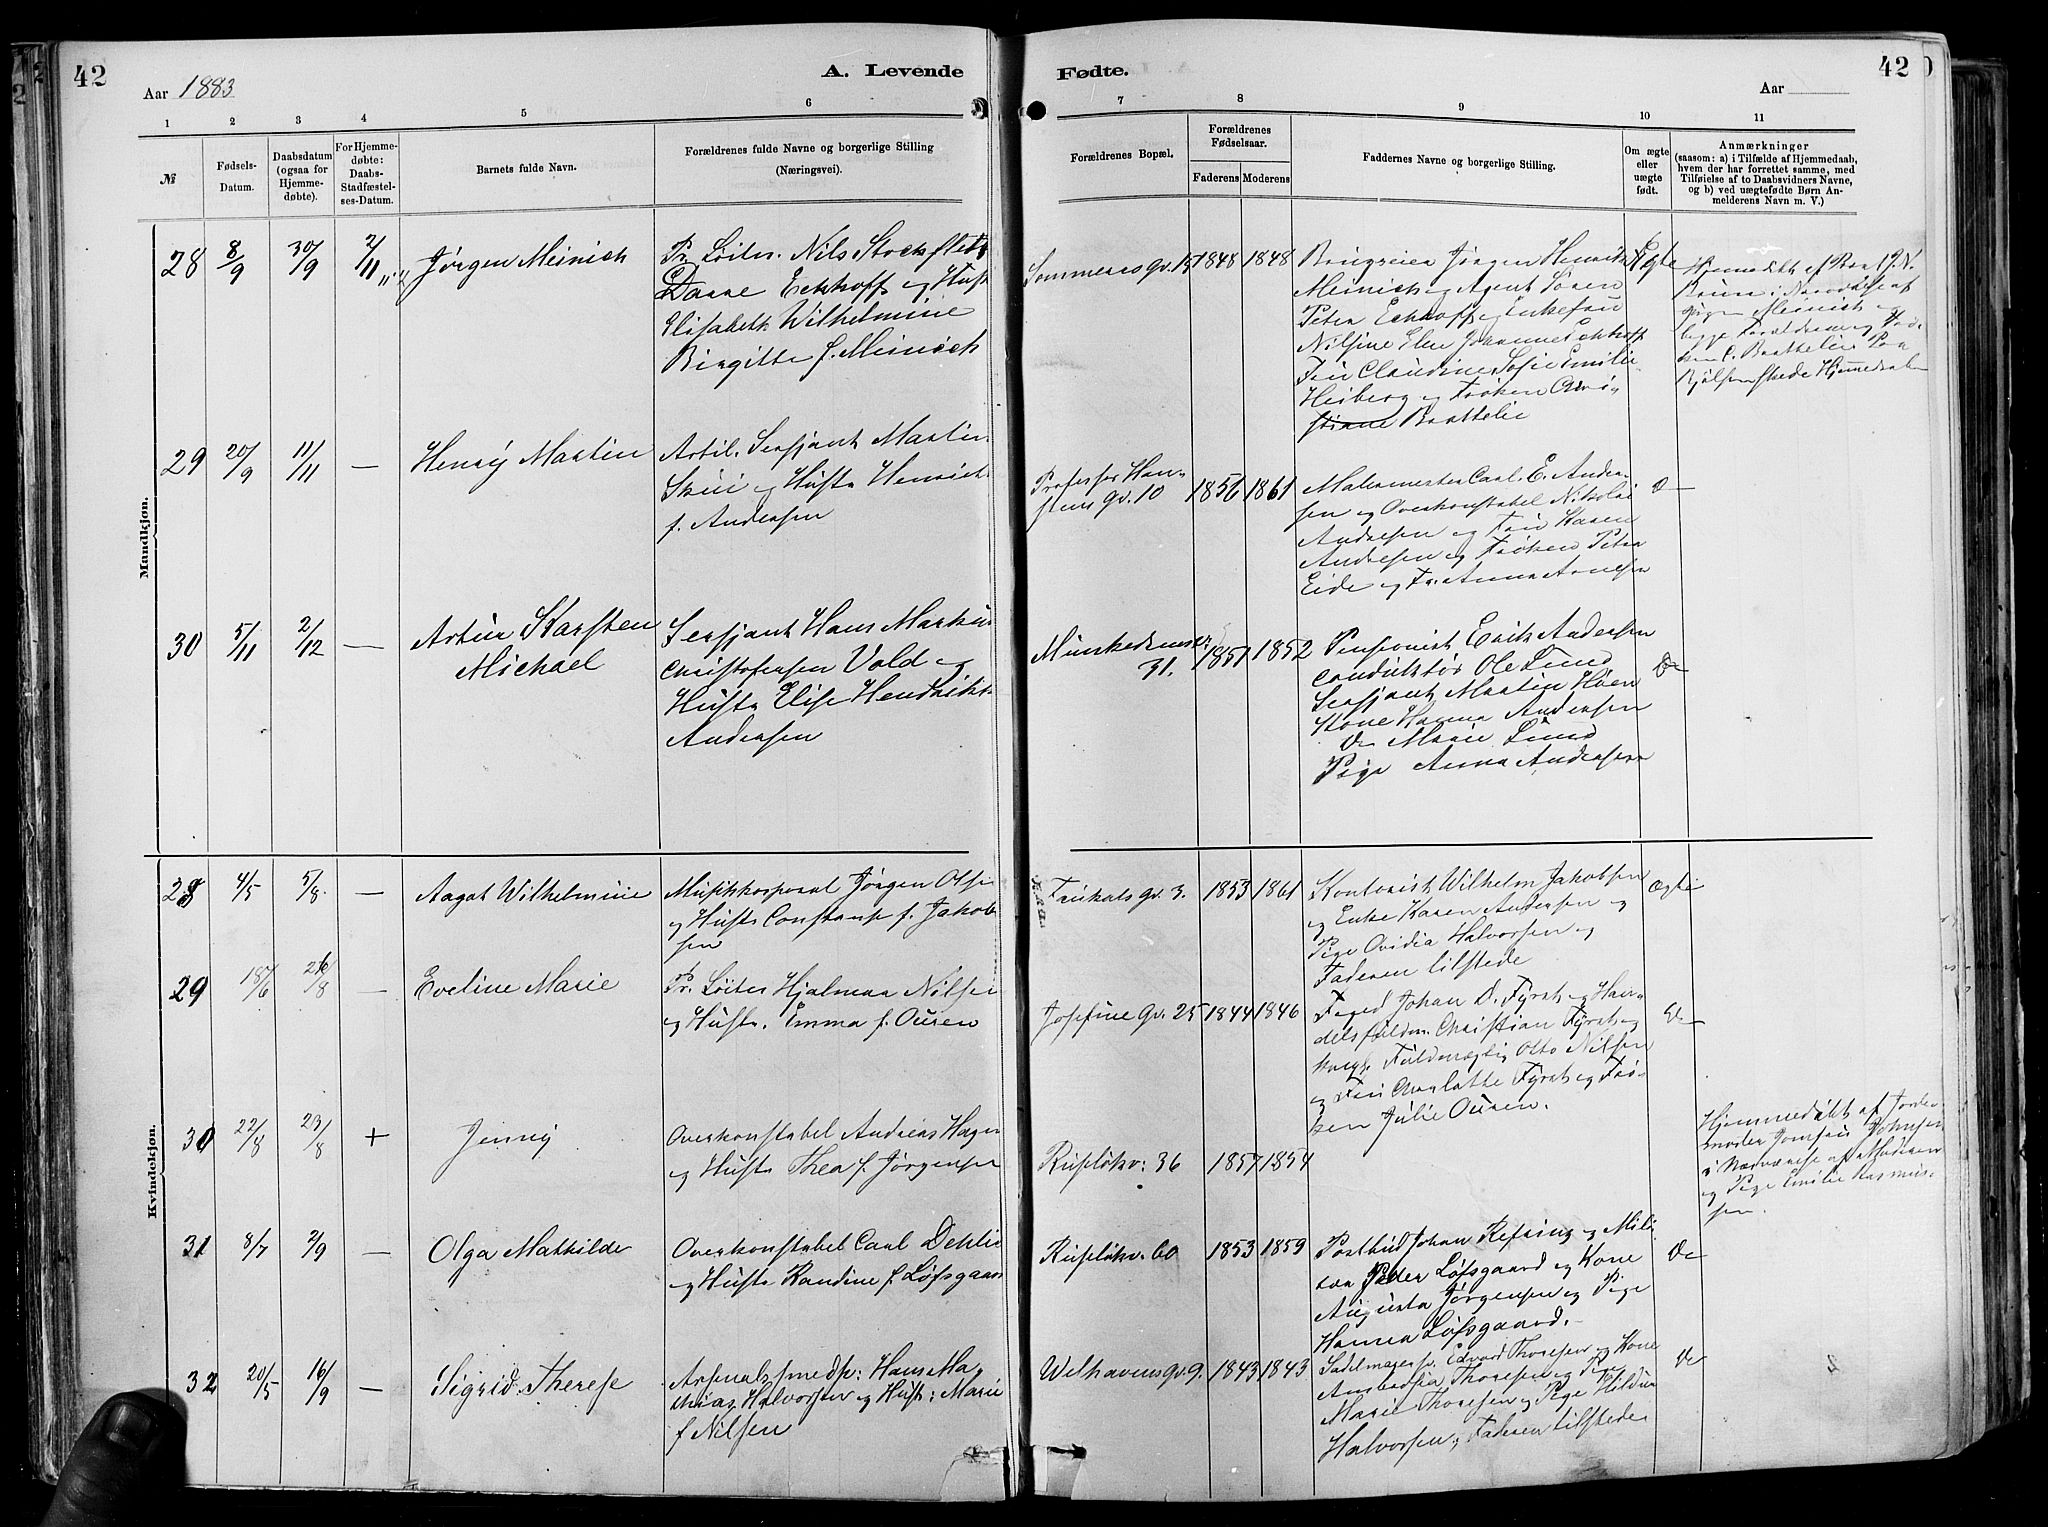 42
Aar 1883
A. Levende
Fødte.
Aar
42
1 2 3 4 5 6 7 8 9 10 11
№
Fødsels-
Datum.
Daabsdatum
(ogsaa for
Hjemme-
døbte).
For Hjemme-
døbte:
Daabs-
Stadfæstel-
ses-Datum.
Barnets fulde Navn.
Forældrenes fulde Navne og borgerlige Stilling
(Næringsvei).
Forældrenes Bopæl.
Forældrenes
Fødselsaar.
Faderens Moderens
Faddernes Navne og borgerlige Stilling.
Om ægte
eller
uægte
født.
Anmærkninger
(saasom: a) i Tilfælde af Hjemmedaab,
hvem der har forrettet samme, med
Tilføielse af to Daabsvidners Navne,
og b) ved uægtefødte Børn An-
melderens Navn m. V.)
Mandkjøn.
28 8/9 30/9 2/11 Jørgen Meinich
Pr Løitn. Nils Stockfleth
Daare Eckhoff og Hust
Elisabeth Wilhelmine
Birgitte f. Meinich
Sommeros gv. 15 1848 1848
Brugseier Jørgen Henrik
Meinich og Agent Søren
Peter Eckhoff og Enkefru
Nilsine Elen Johanne Eckhoff
Fru Claudine Sofie Emilie
Heiberg og Frøken Chri-
stiane Brattelie
Ægte
Hjemmedøbt af
Bruun i Nærværelse af
Jørgen Meinich og
begge Forældrene og
Hjemmedaaben
29 20/9 11/11 — Henry Martin
Artil. Sersjant Martin
og Hustr Henriette
f. Andersen
Professor Han-
stens gv. 10 1856 1861
Malermester Carl. E. Ander-
sen og Overkonstabel Nikolai
Andresen og Fru Karen
Andresen og Frøken Petra
Eide og Fr. Anna Arnesen
D—
30 5/11 2/12 — Artur Karsten
Michael
Sersjant Hans Markus
Christofersen Vold og
Hustr Elise Hendrikke
Andersen
Munkedamsv.
31. 1851 1852
Pensionist Erik Andersen
Conduktør Ole Lund
Sersjant Martin Høen
Kone Hanna Andersen
Do Marie Lund
Pige Anna Andersen
Do
Kvindekjøn.
28 4/5 5/8 — Aagot Wilhelmine
Musikkorporal Jørgen Olsen
og Hustr Constanse f. Jakob
sen
Truikats gv 3. 1853 1861
Kontorist Wilhelm Jakobsen
og Enke Karen Andersen og
Pige Ovidia Halvorsen og
Faderen tilstede
Ægte
29 18/6 26/8 — Eveline Marie
Pr. Løitn Hjalmar Nilsen
og Hustr. Emma f. Ouren
Josefine gv. 25 1844 1846
Foged Johan D. Fyrst og Han-
delsfuldm. Christian Fyrst og
Fuldmægtig Otto Nilsen
og Fru Charlotte Fyrst og Frø-
ken Julie Ouren.
30 22/8 23/8 + Jenny
Overkonstabel Andreas Hagen
og Hustr Thea f. Jørgensen
Rusløkv: 36 1857 1854
Hjemmedøbt af Jorde-
moder Jomfru Johnsen
i Nærværelse af Moderen
og Pige Emilie Rasmus-
sen.
31 8/7 2/9 — Olga Mathilde
Overkonstabel Carl Dehlie
og Hustr Randine f Løfsgaard
Rusløkv. 60 1853 1859
Postbud Johan Refsing og
Peder Løfsgaard og Kone
Augusta Jørgensen og Pige
Hanna Løfsgaard.
Do
32 20/5 16/9 — Sigrid Therese
Arsenalsmedsv: Hans Ma-
thias Halvorsen og Hustr: Marie
f Nilsen
Welhavens gv. 9. 1843 1843
Sadelmagersv. Edvard Thoresen og Kone
Ambrosia Thoresen og Pige
Marie Thoresen og Pige Hildur
Halvorsen, Faderen tilstede
Do